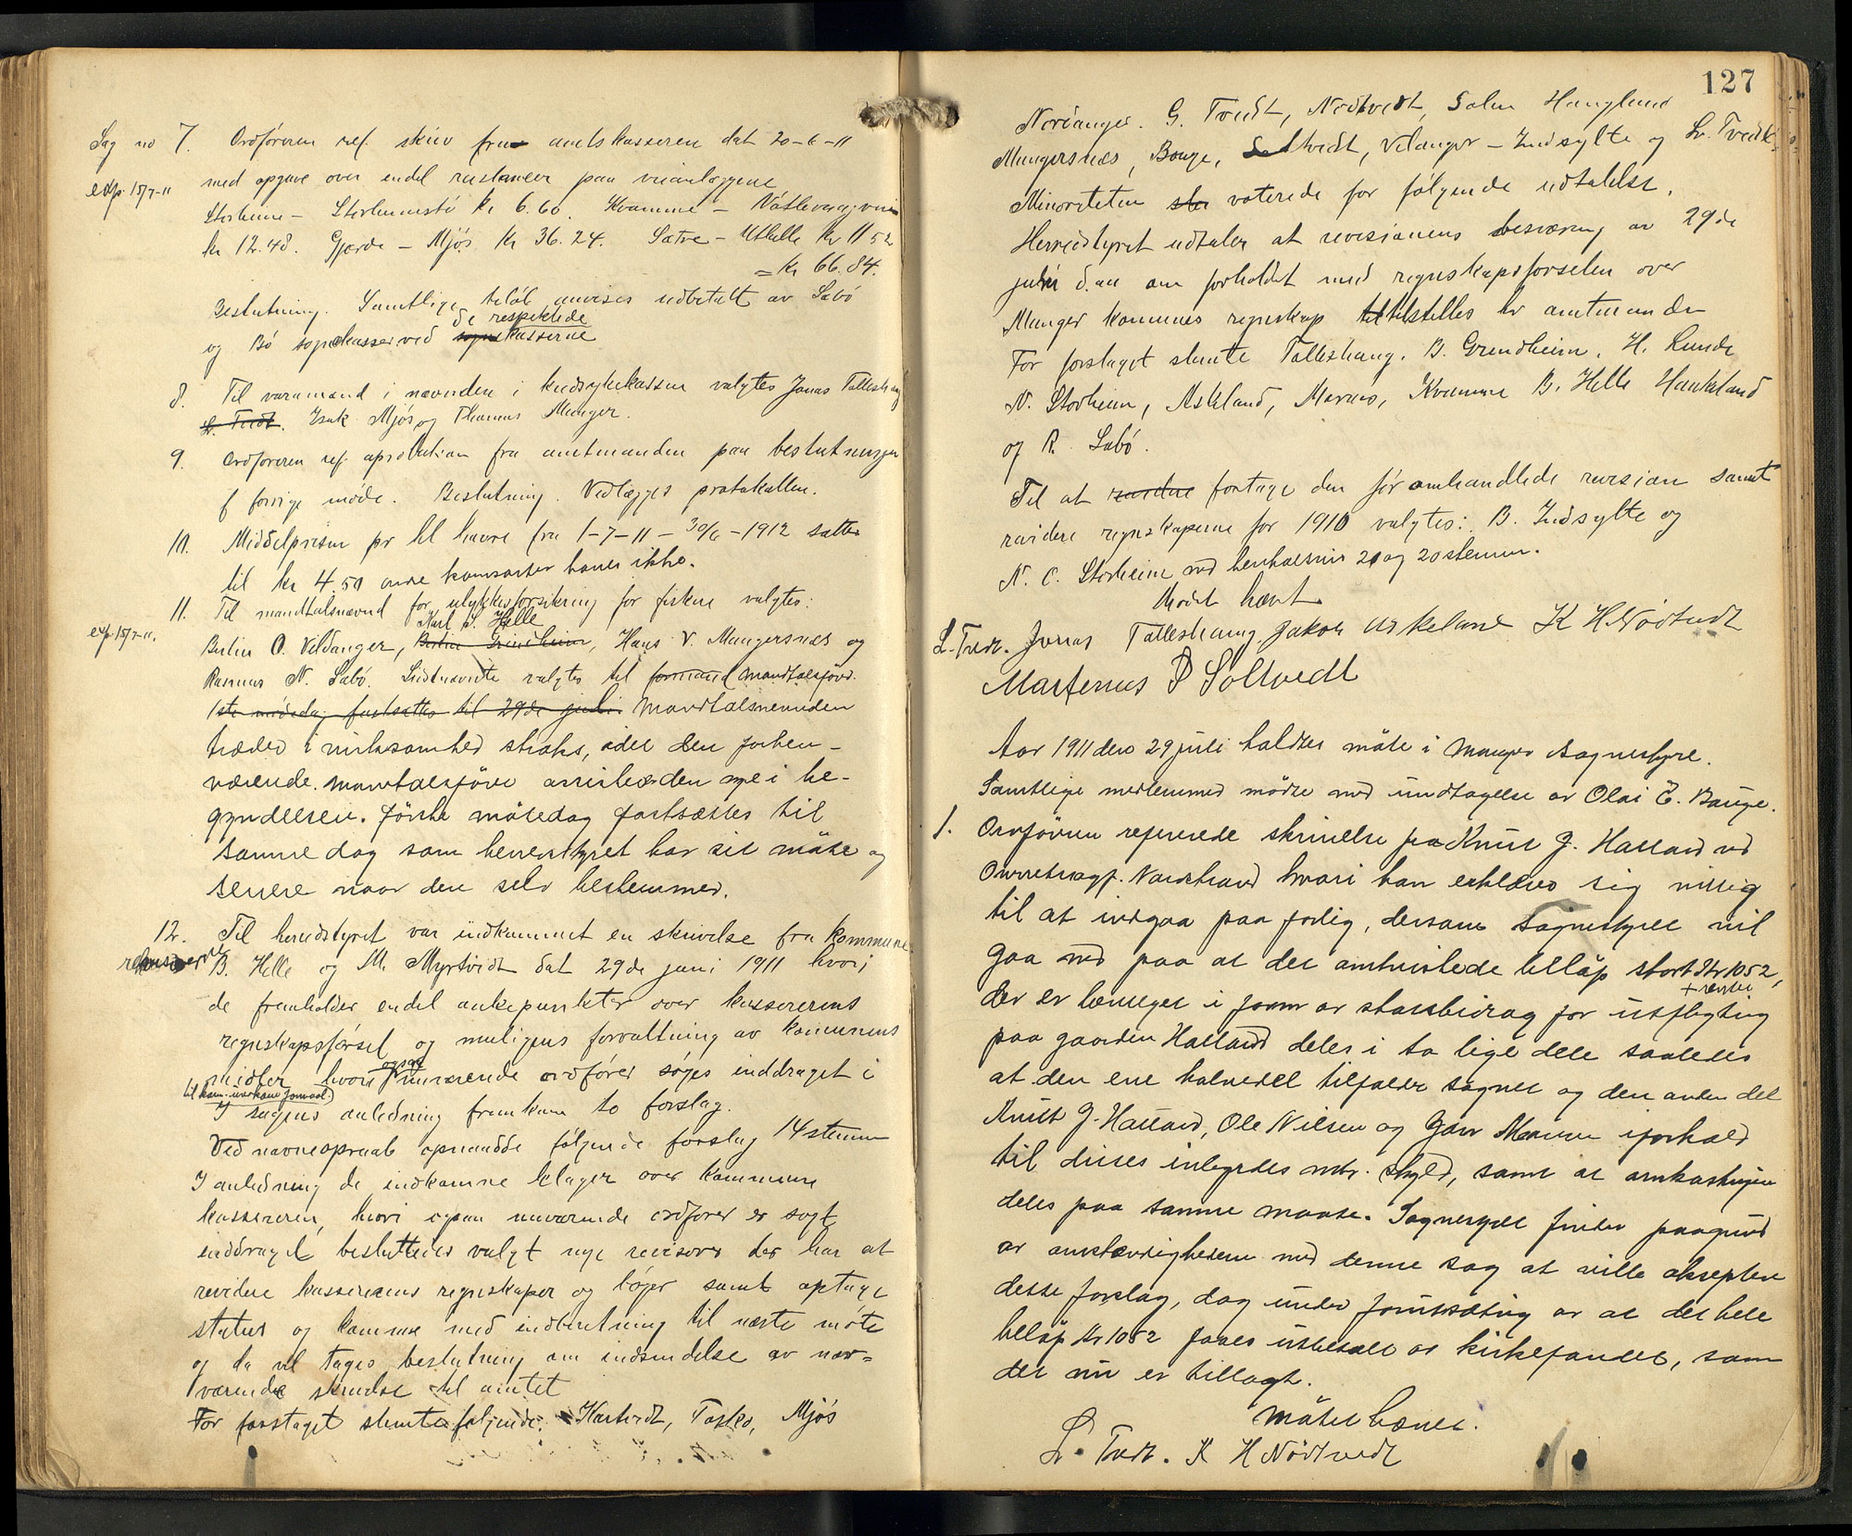 Sag no 7. Ordføreren ref. skriv fra amtskasseren dat 20-6-11
exp. 15/7-11 med opgave over endel restancer paa veianlæggene
Storheim - Storheimstø kr 6.60. Kvamme -
kr 12.48. Gjerde - Mjøs kr 36.24. Sætre - Uthelle kr 11 52
= kr 66.84.
Beslutning. Samtlige beløb anvises udbetalt av Sæbø
de respektide
og Bø sognekasser ved sognekasserne
8. Til varamand i nævnden i kredsykekassen valgtes Jonas Tolleshaug
L. Tvedt. Isak Mjøs og Thomas Manger.
9. Ordføreren ref. aprobation fra amtmanden paa beslutninger
f forrige møde. Beslutning. Vedlægges protokollen.
10. Middelprisen pr hl havre fra 1-7-11 - 30/6 - 1912 sattes
til kr 4.50 andre kornsorter haves ikke.
11. Til mandtalsnævnd for ulykkesforsikring for fiskere valgtes:
exp. 15/7-11. Karl S. Helle
Berlin O. Vildanger, Berlin Grindheim, Hans V. Mangersnæs og
Rasmus N. Sæbø. Sidstnævnte valgtes til formand mandtalsfører.
1ste mødedag fastsattes til 29de juli. Mandtalsnevnden
træder i virksomhed straks, idet den forhen-
værende mandtalsfører arbeider den nye i be-
gyndelsen. Første mötedag fastsættes til
samme dag som herredstyret har sit möte og
senere naar den selv bestemmer.
12. Til herredstyret var indkommet en skrivelse fra kommune
revisorerne B. Helle og M. Myrtvedt dat 29de juni 1911 hvori
de fremholder endel ankepunkter over kassererens
regnskapsførsel og muligens forvaltning av kommunens
ogsaa
midler hvori nuværende ordfører søges inddraget i
I sagens anledning fremkom to forslag.
Ved navneopraab opnaadde følgende forslag 14 stemmer
I anledning de indkomne klager over kommune
kassereren, hvori ogsaa nuværende ordfører er søgt
inddraget besluttedes valgt nye revisorer der har at
revidere kassererens regnskaper og bøger samt optage
status og komme med indberetning til næste møte
og da vil tages beslutning om indsendelse av nær-
værende skrivelse til amtet
For forslaget stemte følgende: Hartvedt, Toska, Mjøs
127
Nordanger. G. Tvedt, Nødtvedt, Salm Haugland
Mangersnæs, Bouge, Soltvedt, Vilanger - Indsylte og L. Tvedt.
Minoriteten voterede for følgende udtalelse.
Herredstyret udtaler at revisionens besværing av 29de
juni d.aa om forholdet med regnskapsførselen over
Manger kommunes regnskap tilstilles hr amtmanden
For forslaget stemte Tolleshaug. B. Grindheim. H. Lunde
N. Storheim, Askeland, Marøs, Kvamme B. Helle Haukeland
og R. Sæbø.
Til at foretage den før omhandlede revision samt
revidere regnskaperne for 1910 valgtes: B. Indsylte og
N. C. Storheim med henholdsvis 21 og 20 stemmer.
Mødet hævet
L. Tvedt. Jonas Tolleshaug. Jakob Askeland K H Nødtvedt
Martenus P Soltvedt
Aar 1911 den 29 juli holdtes möte i Manger sognestyre.
Samtlige medlemmer mödte med undtagelse av Olai E. Bauge.
1. Ordföreren refererede skrivelse fra Knut G. Halland ved
Overretssagf. Nordstrand hvori han erklærer sig villig
til at indgaa paa forlig, dersom sognestyret vil
gaa med paa at det omtvistede belløp stort Kr 1052,
+ renter
der er hævet i form av statsbidrag for utflygting
paa gaarden Halland deles i to lige dele saaledes
at den ene halvedel tilfalder sognet og den anden del
Knut G. Halland, Ole Nilsen og Gdr Monsen i forhold
til disses inbyrdes mtr. skyld, samt at omkostningen
deles paa samme maate. Sognestyret finder paa grund
av omstændighederne med denne sag at ville akseptere
dette forslag, dog under forutsætning av at det hele
belløp Kr 1052 faaes utbetalt av kirkefondet, som
det nu er tillagt.
Mötet hævet.
L. Tvedt. K H Nødtvedt